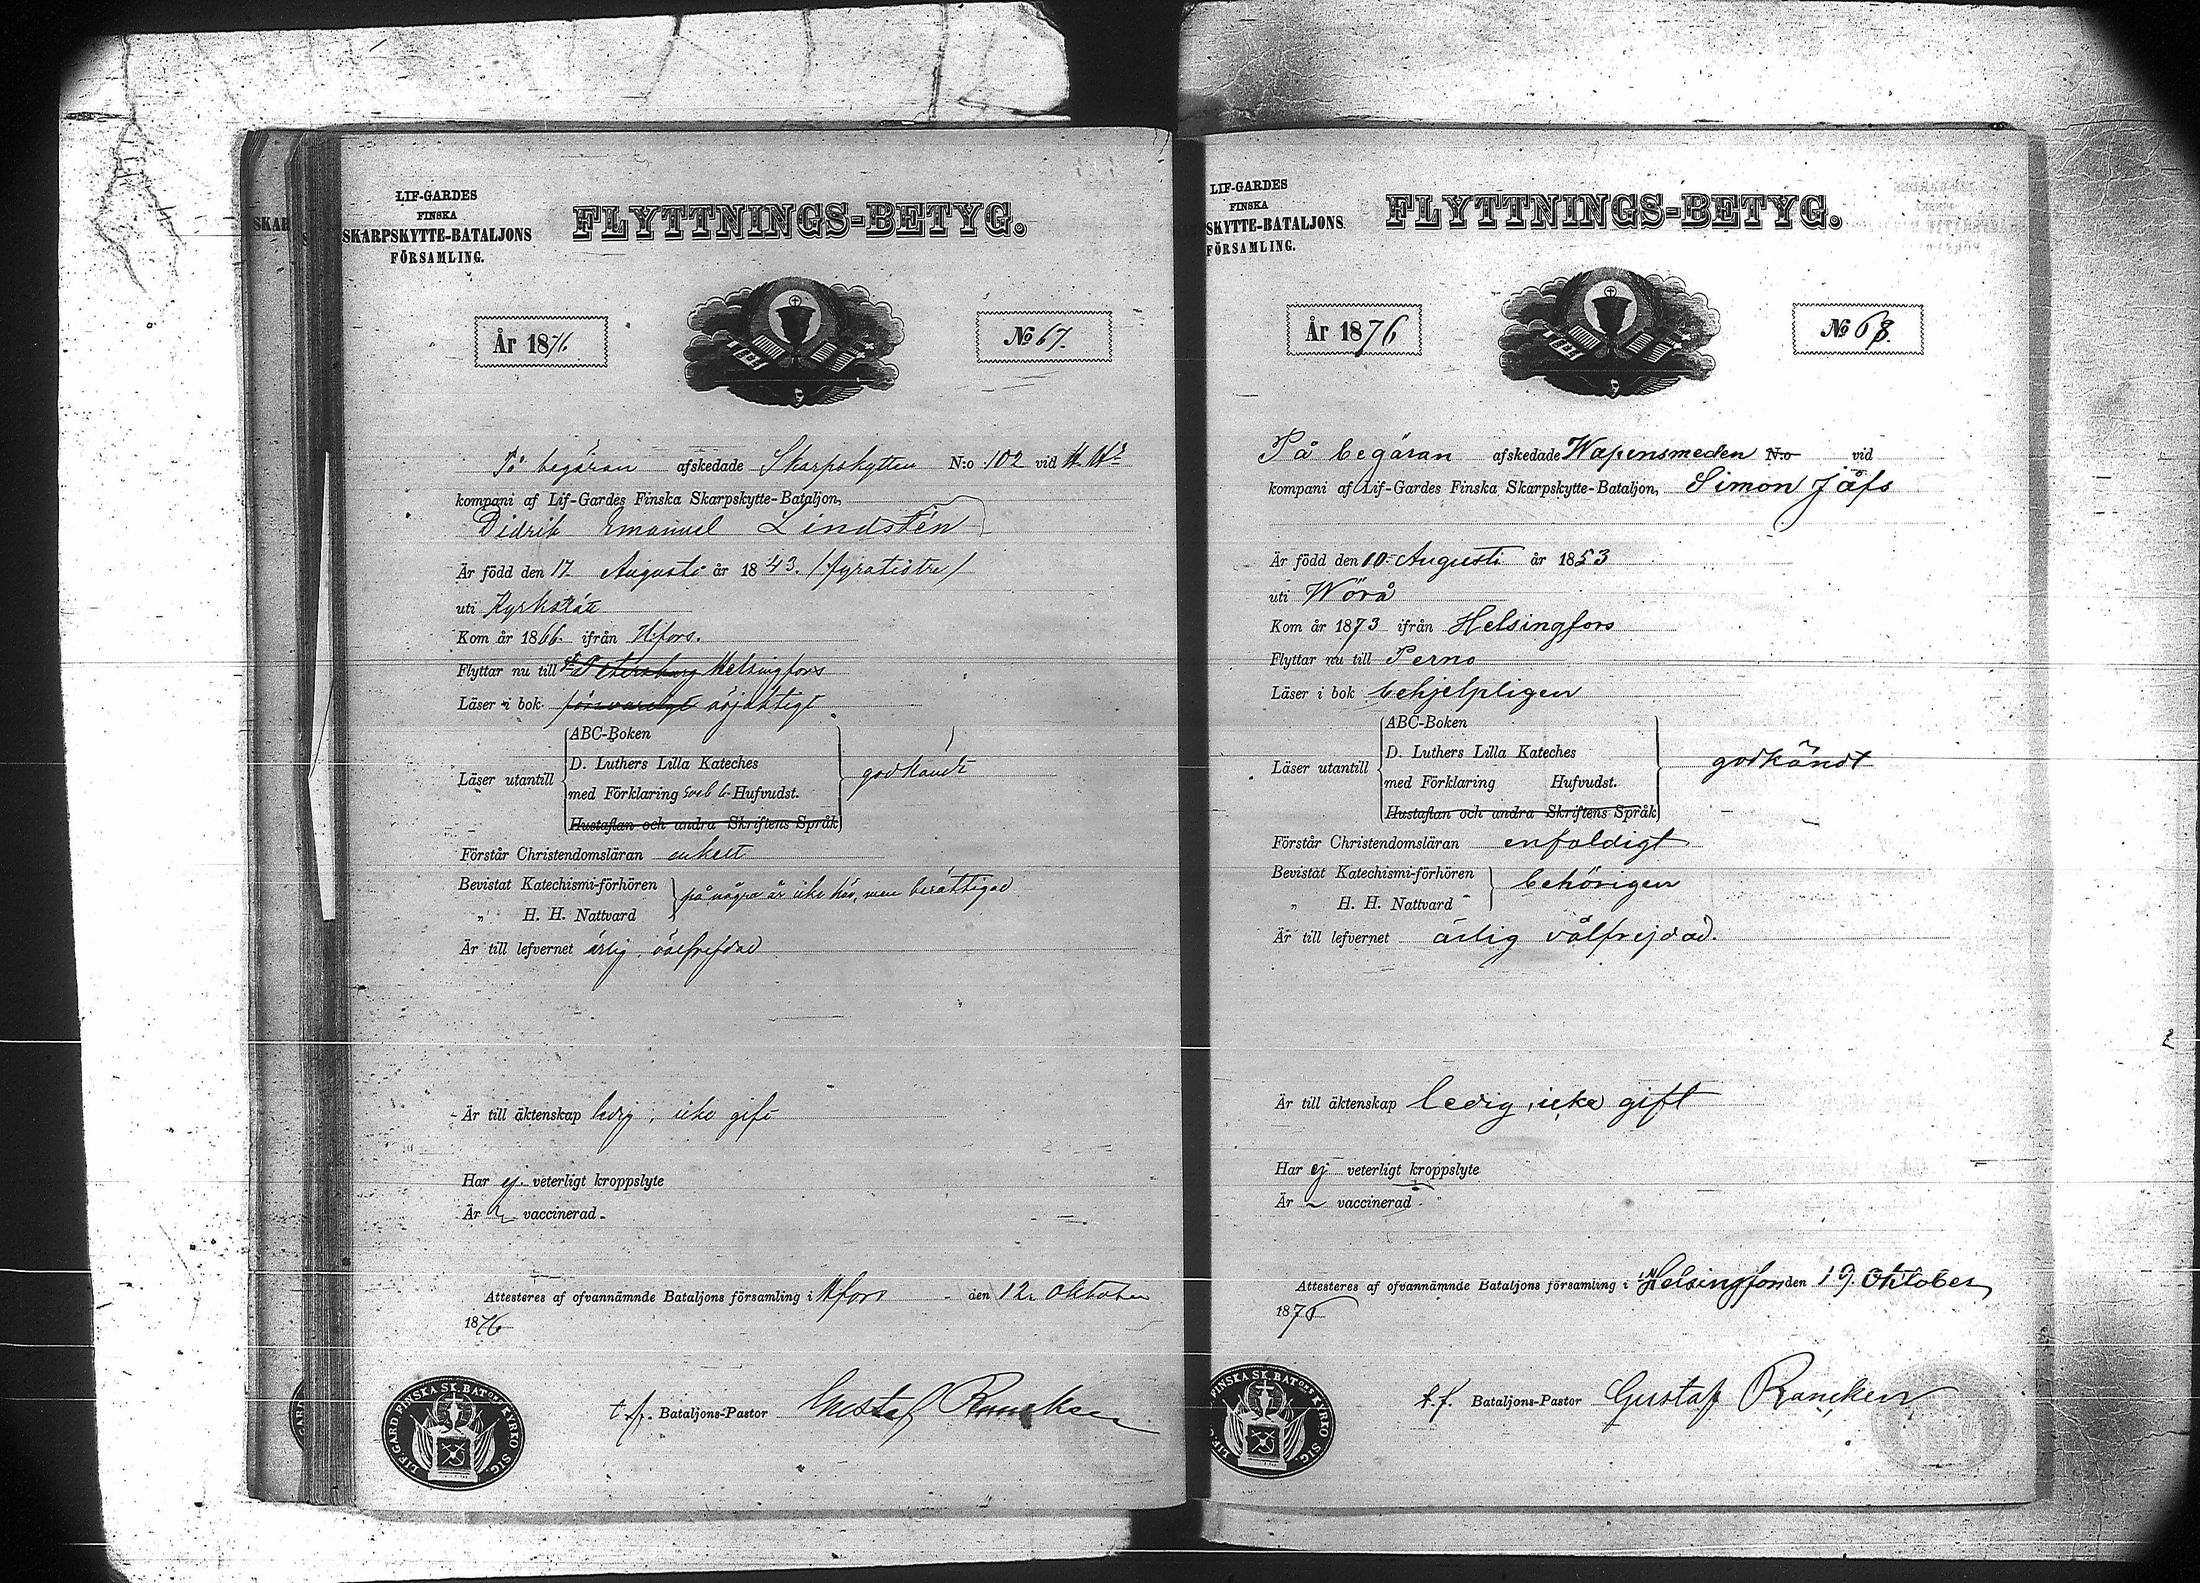 SKAR
LIF-GARDES
FINSKA
SKARPSKYTTE-BATALJONS
FÖRSAMLING.
FLYTTNINGS-BETYG.
År 1876
No 67.
På begäran afskedade Skarpskytten N:o 102 vid
kompani af Lif-Gardes Finska Skarpskytte-Bataljon,
Didrik Emanuel Lindstén
Är född den 17 Augusti år 1843. /fyratiotre/
uti Kyrkslätt
Kom år 1866. ifrån H:fors.
Flyttar nu till St Petersburg Helsingfors
Läser i bok försvarligt nöjaktigt
Läser utantill
ABC-Boken
D. Luthers Lilla Kateches
med Förklaring Hufvudst.
Hustaflan och andra Skriftens Språk
godkändt
Förstår Christendomsläran enkelt
Bevistat Katechismi-förhören
„ H. H. Nattvard
på några år icke här, men berättigad
Är till lefvernet ärlig, välfrejdad
Är till äktenskap ledig, icke gift
Har ej veterligt kroppslyte
Är vaccinerad
Attesteres af ofvannämnde Bataljons församling i H:fors den 12. Oktober
1876
t.f. Bataljons-Pastor Gustaf Rancken
LIF. GARD. FINSKA SK. BAT:ONS KYRKO SIG.
LIF-GARDES
FINSKA
SKYTTE-BATALJONS
FÖRSAMLING.
FLYTTNINGS-BETYG.
År 1876
No 68.
På begäran afskedade Wapensmeden N:o vid
kompani af Lif-Gardes Finska Skarpskytte-Bataljon, Simon Jåfs
Är född den 10 Augusti år 1853
uti Wörå
Kom år 1873 ifrån Helsingfors
Flyttar nu till Perno
Läser i bok behjelpligen
Läser utantill
ABC-Boken
D. Luthers Lilla Kateches
med Förklaring Hufvudst.
Hustaflan och andra Skriftens Språk
godkändt
Förstår Christendomsläran enfaldigt
Bevistat Katechismi-förhören
„ H. H. Nattvard
behörigen
Är till lefvernet ärlig välfrejdad.
Är till äktenskap ledig, icke gift
Har ej veterligt kroppslyte
Är vaccinerad
Attesteres af ofvannämnde Bataljons församling i Helsingfors den 19. Oktober
1876
t.f. Bataljons-Pastor Gustaf Rancken
FINSKA SK. BAT:ONS KYRKO SIG.